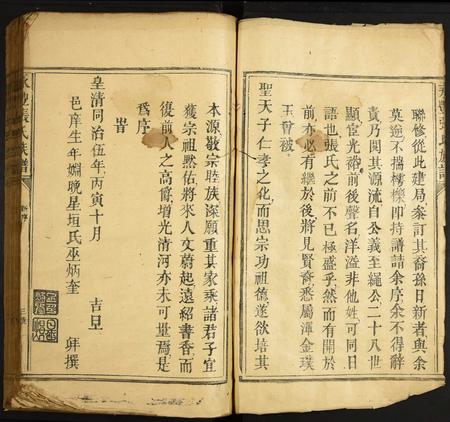 聯修從此建局泰訂其裔孫日新者與余
莫逆不揣樗櫟即持譜請余序余不得辭
責乃閱其源流自公義至繩公二十八世
顯宦光前啟後聲名洋溢非他姓可同日
語也張氏之前不已極盛乎然而有開於
前亦必有繼於後將見賢裔悉屬渾金璞
玉曾被
聖天子仁孝之化而思宗功祖德遂欲培其
本源敬宗睦族深願重其家乘諸君子宜
獲宗祖默佑將來人文蔚起遠紹書香而
復前人之高風增光清河亦未可量焉是
為序
旹
皇清同治伍年丙寅十月 吉旦
邑庠生年姻晚星垣氏巫炳奎 拜撰
永豐張氏族譜